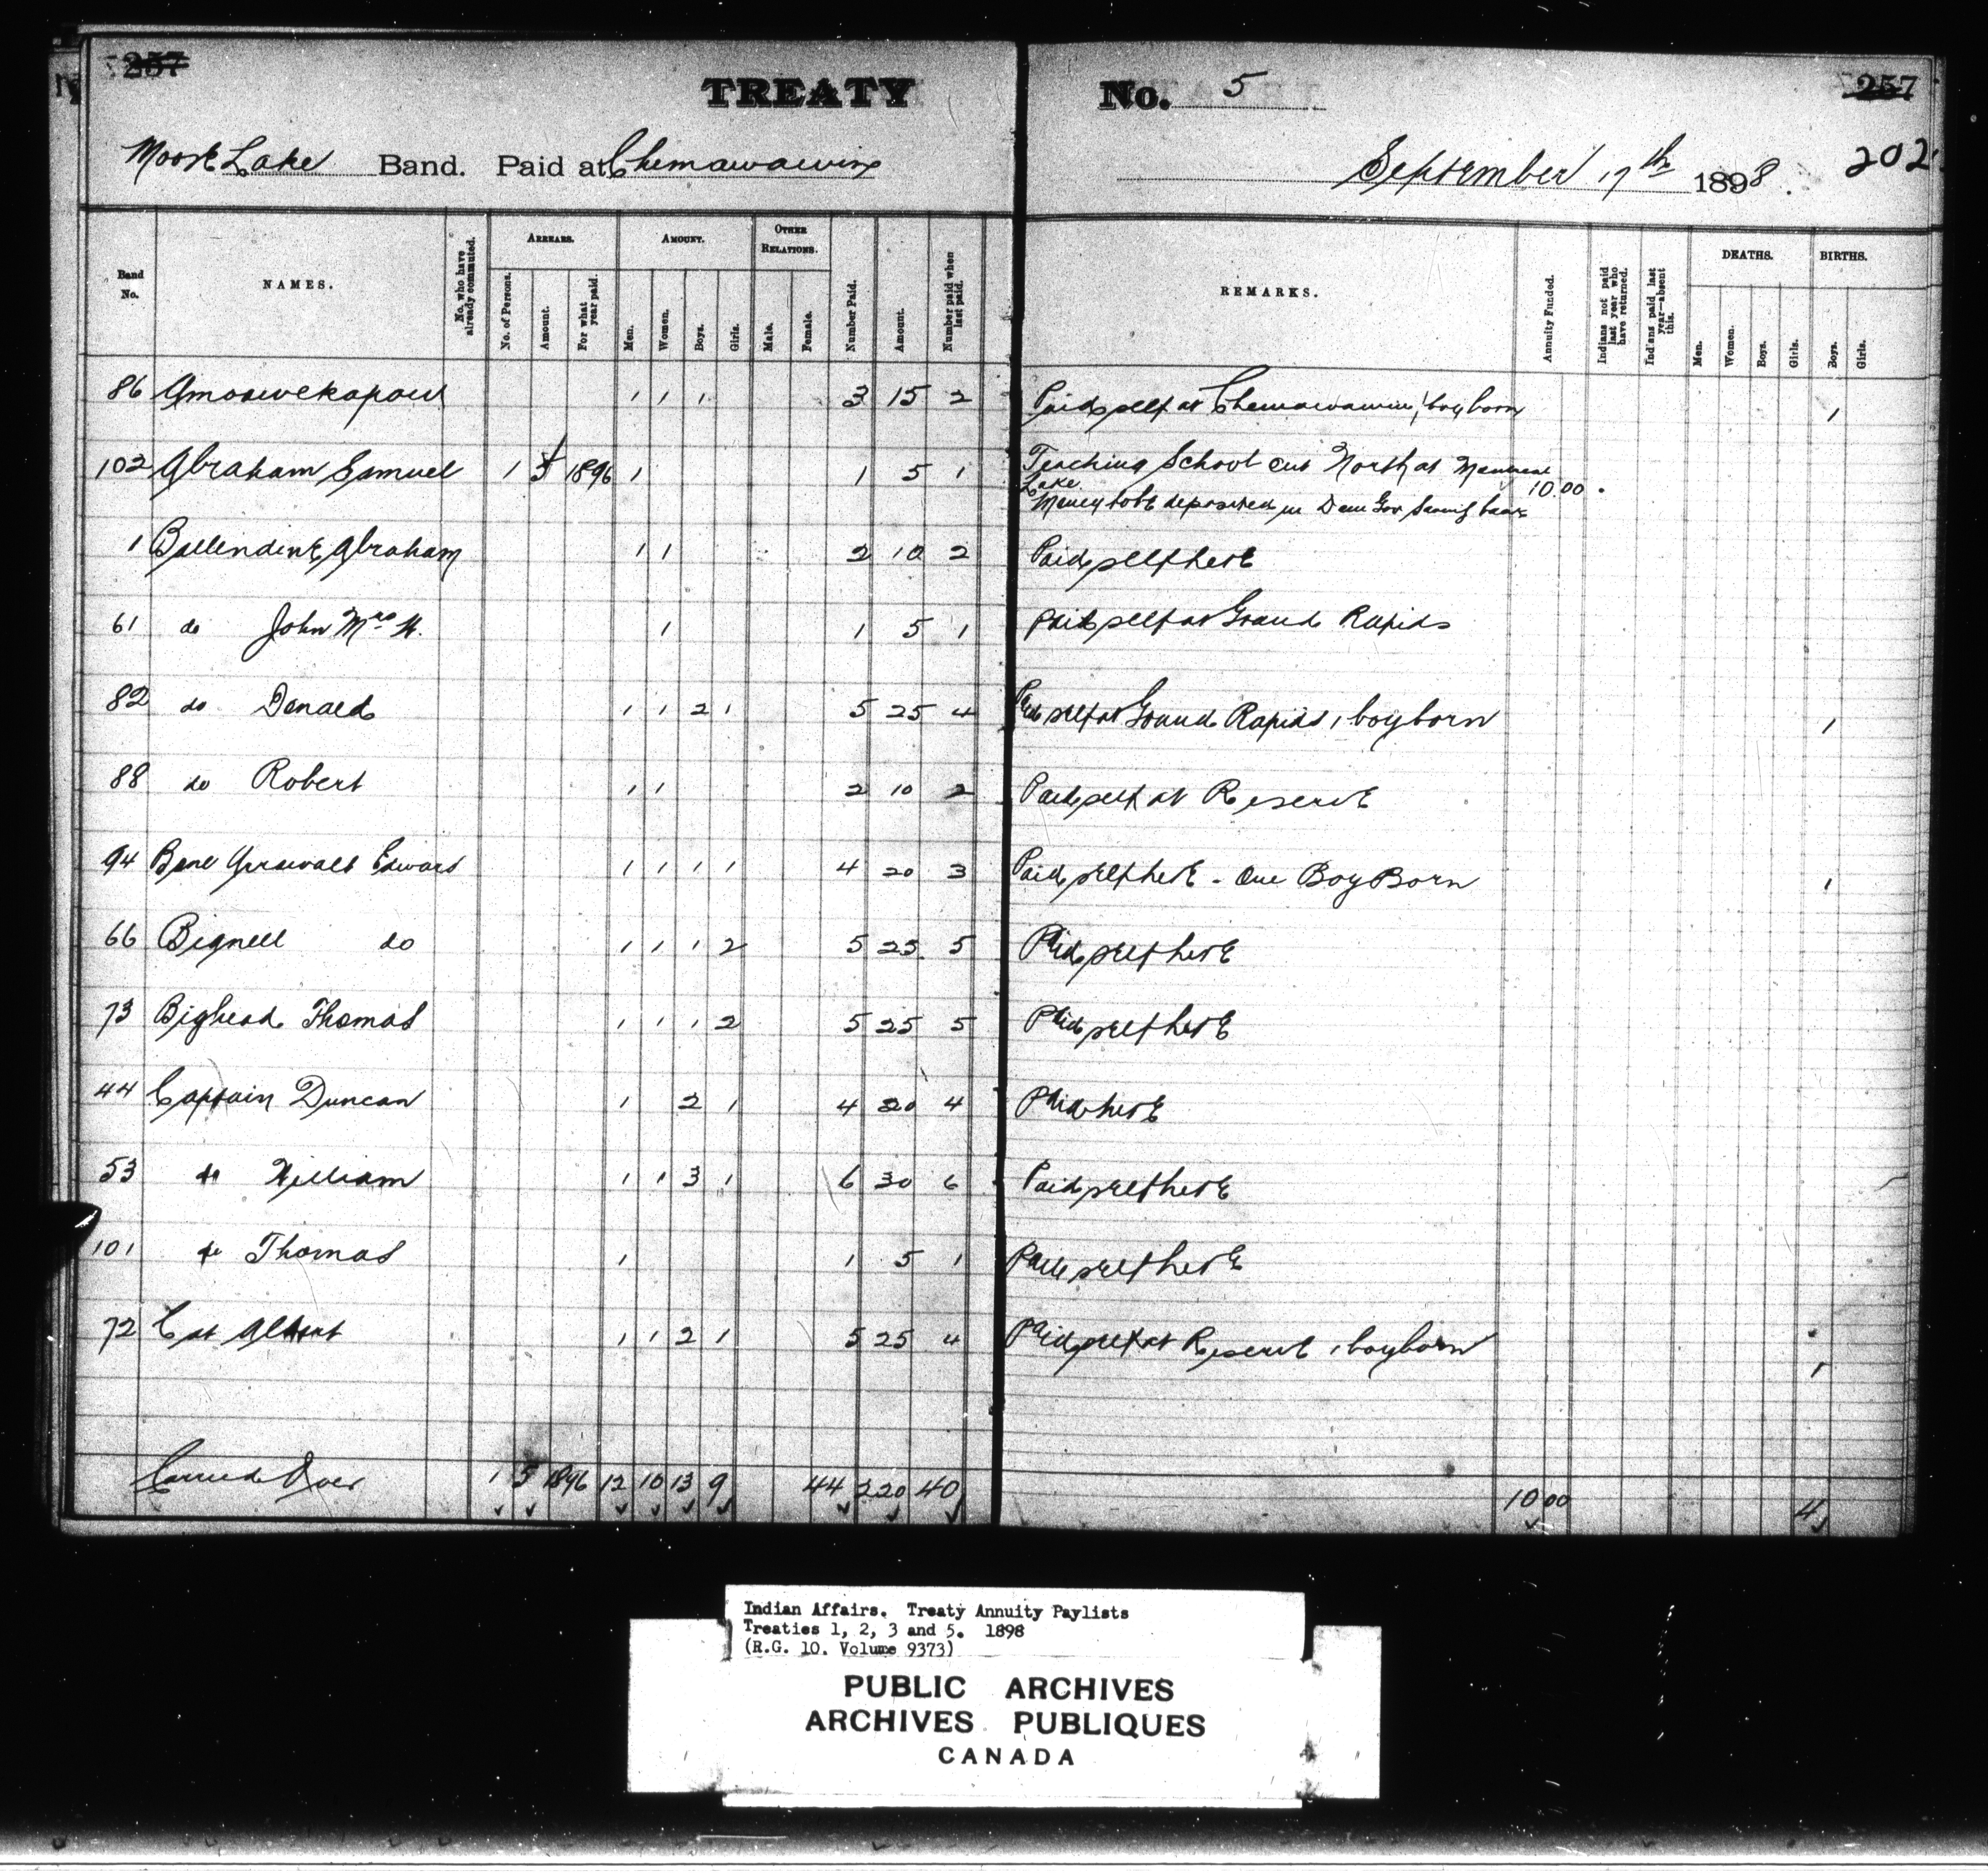 257
TREATY No. 5 257
Moose Lake Band. Paid at Chemawawin September 17th 1898. 202
Band No.
NAMES.
No. who have already commuted.
ARREARS.
No. of Persons.
Amount.
For what year paid.
AMOUNT.
Men.
Women.
Boys.
Girls.
OTHER RELATIONS.
Male.
Female.
Number Paid.
Amount.
Number paid when last paid.
REMARKS.
Annuity Funded.
Indians not paid last year who have returned.
Indians paid last year—absent this.
DEATHS.
Men.
Women.
Boys.
Girls.
BIRTHS.
Boys.
Girls.
86 Amoowekapow 1 1 1 3 15 2 Paid self at Chemawawin 1 boy born 1
102 Abraham Samuel 1 5 1896 1 1 5 1 Teaching School out North at Montreal
Lake 10.00
Money to be deposited in Dom Gov Saving bank
1 Ballendine Abraham 1 1 2 10 2 Paid self here
61 do John Mrs W. 1 1 5 1 Paid self at Grand Rapids
82 do Donald 1 1 2 1 5 25 4 Paid self at Grand Rapids 1 boy born 1
88 do Robert 1 1 2 10 2 Paid self at Reserve
94 Edward 1 1 1 1 4 20 3 Paid self here - One Boy Born 1
66 Bignell do 1 1 1 2 5 25. 5 Paid self here
73 Bighead Thomas 1 1 1 2 5 25 5 Paid self here
44 Captain Duncan 1 2 1 4 20 4 Paid here
53 do William 1 1 3 1 6 30 6 Paid self here
101 do Thomas 1 1 5 1 Paid self here
72 Cat Albert 1 1 2 1 5 25 4 Paid self at Reserve 1 boy born 1
Carried Over 1 5 1896 12 10 13 9 44 220 40 10 00 4
Indian Affairs. Treaty Annuity Paylists
Treaties 1, 2, 3 and 5. 1898
(R.G. 10. Volume 9373)
PUBLIC ARCHIVES
ARCHIVES PUBLIQUES
CANADA